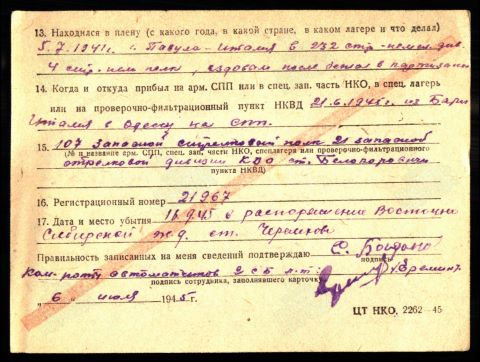 13. Находился в плену (с какого года, в какой стране, в каком лагере и что делал)
5.7.1941 г. Италия в 232 стр. немец. див.
4 стр. нем полк, ездовым после бежал в партизаны
14. Когда и откуда прибыл на арм. СПП или в спец. зап. часть НКО, в спец. лагерь
или на проверочно-фильтрационный пункт НКВД 21.6.1945 г. из Бари
Италия в Одессу на
15. 107 Западной стрелковый полк 21 западной
(№ и название арм. СПП, спец. зап. части НКО, спецлагеря или проверочно-фильтрационного
стрелковой дивизии ст.
пункта НКВД)
16. Регистрационный номер 21967
17. Дата и место убытия в распоряжении Восточно
Сибирской ж.д. ст. Черемхово
Правильность записанных на меня сведений подтверждаю
подпись
Ком. роты автоматчиков 2 СБ л-т: Еремин
подпись сотрудника, заполнявшего карточку
„ 6 " июля 1945 г.
ЦТ НКО, 2262—45